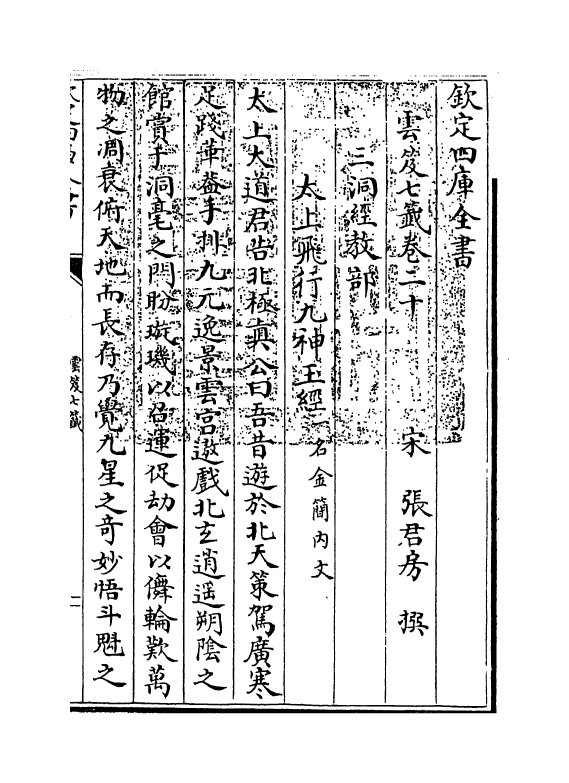 欽定四庫全書
雲笈七籤卷二十
宋 張君房 撰
三洞經教部
太上飛行九神玉經一名金簡內文
太上大道君告北極真公曰吾昔遊於北天策駕廣寒
足踐華蓋手排九元逸景雲宮遨戲北玄逍遥朔陰之
館賞于洞毫之門盼璇璣以召運促劫會以儛輪歎萬
物之凋衰俯天地而長存乃覺九星之奇妙悟斗魁之
雲笈七籤